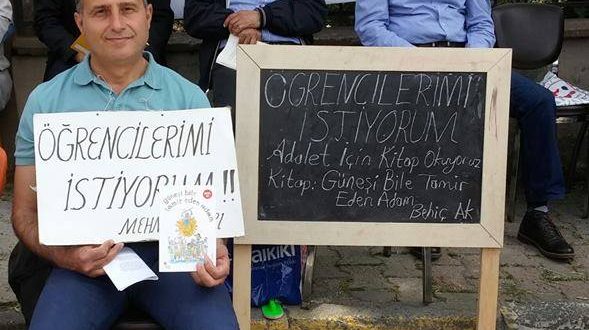 ÖĞRENCİLERİMİ
İSTİYORUM !!
güneşi bile
tamir eden adam
ÖĞRENCİLERİMİ
İSTİYORUM
Adalet İçin Kitap Okuyoruz
Kitap: Güneşi Bile Tamir
Eden Adam
Behiç Ak